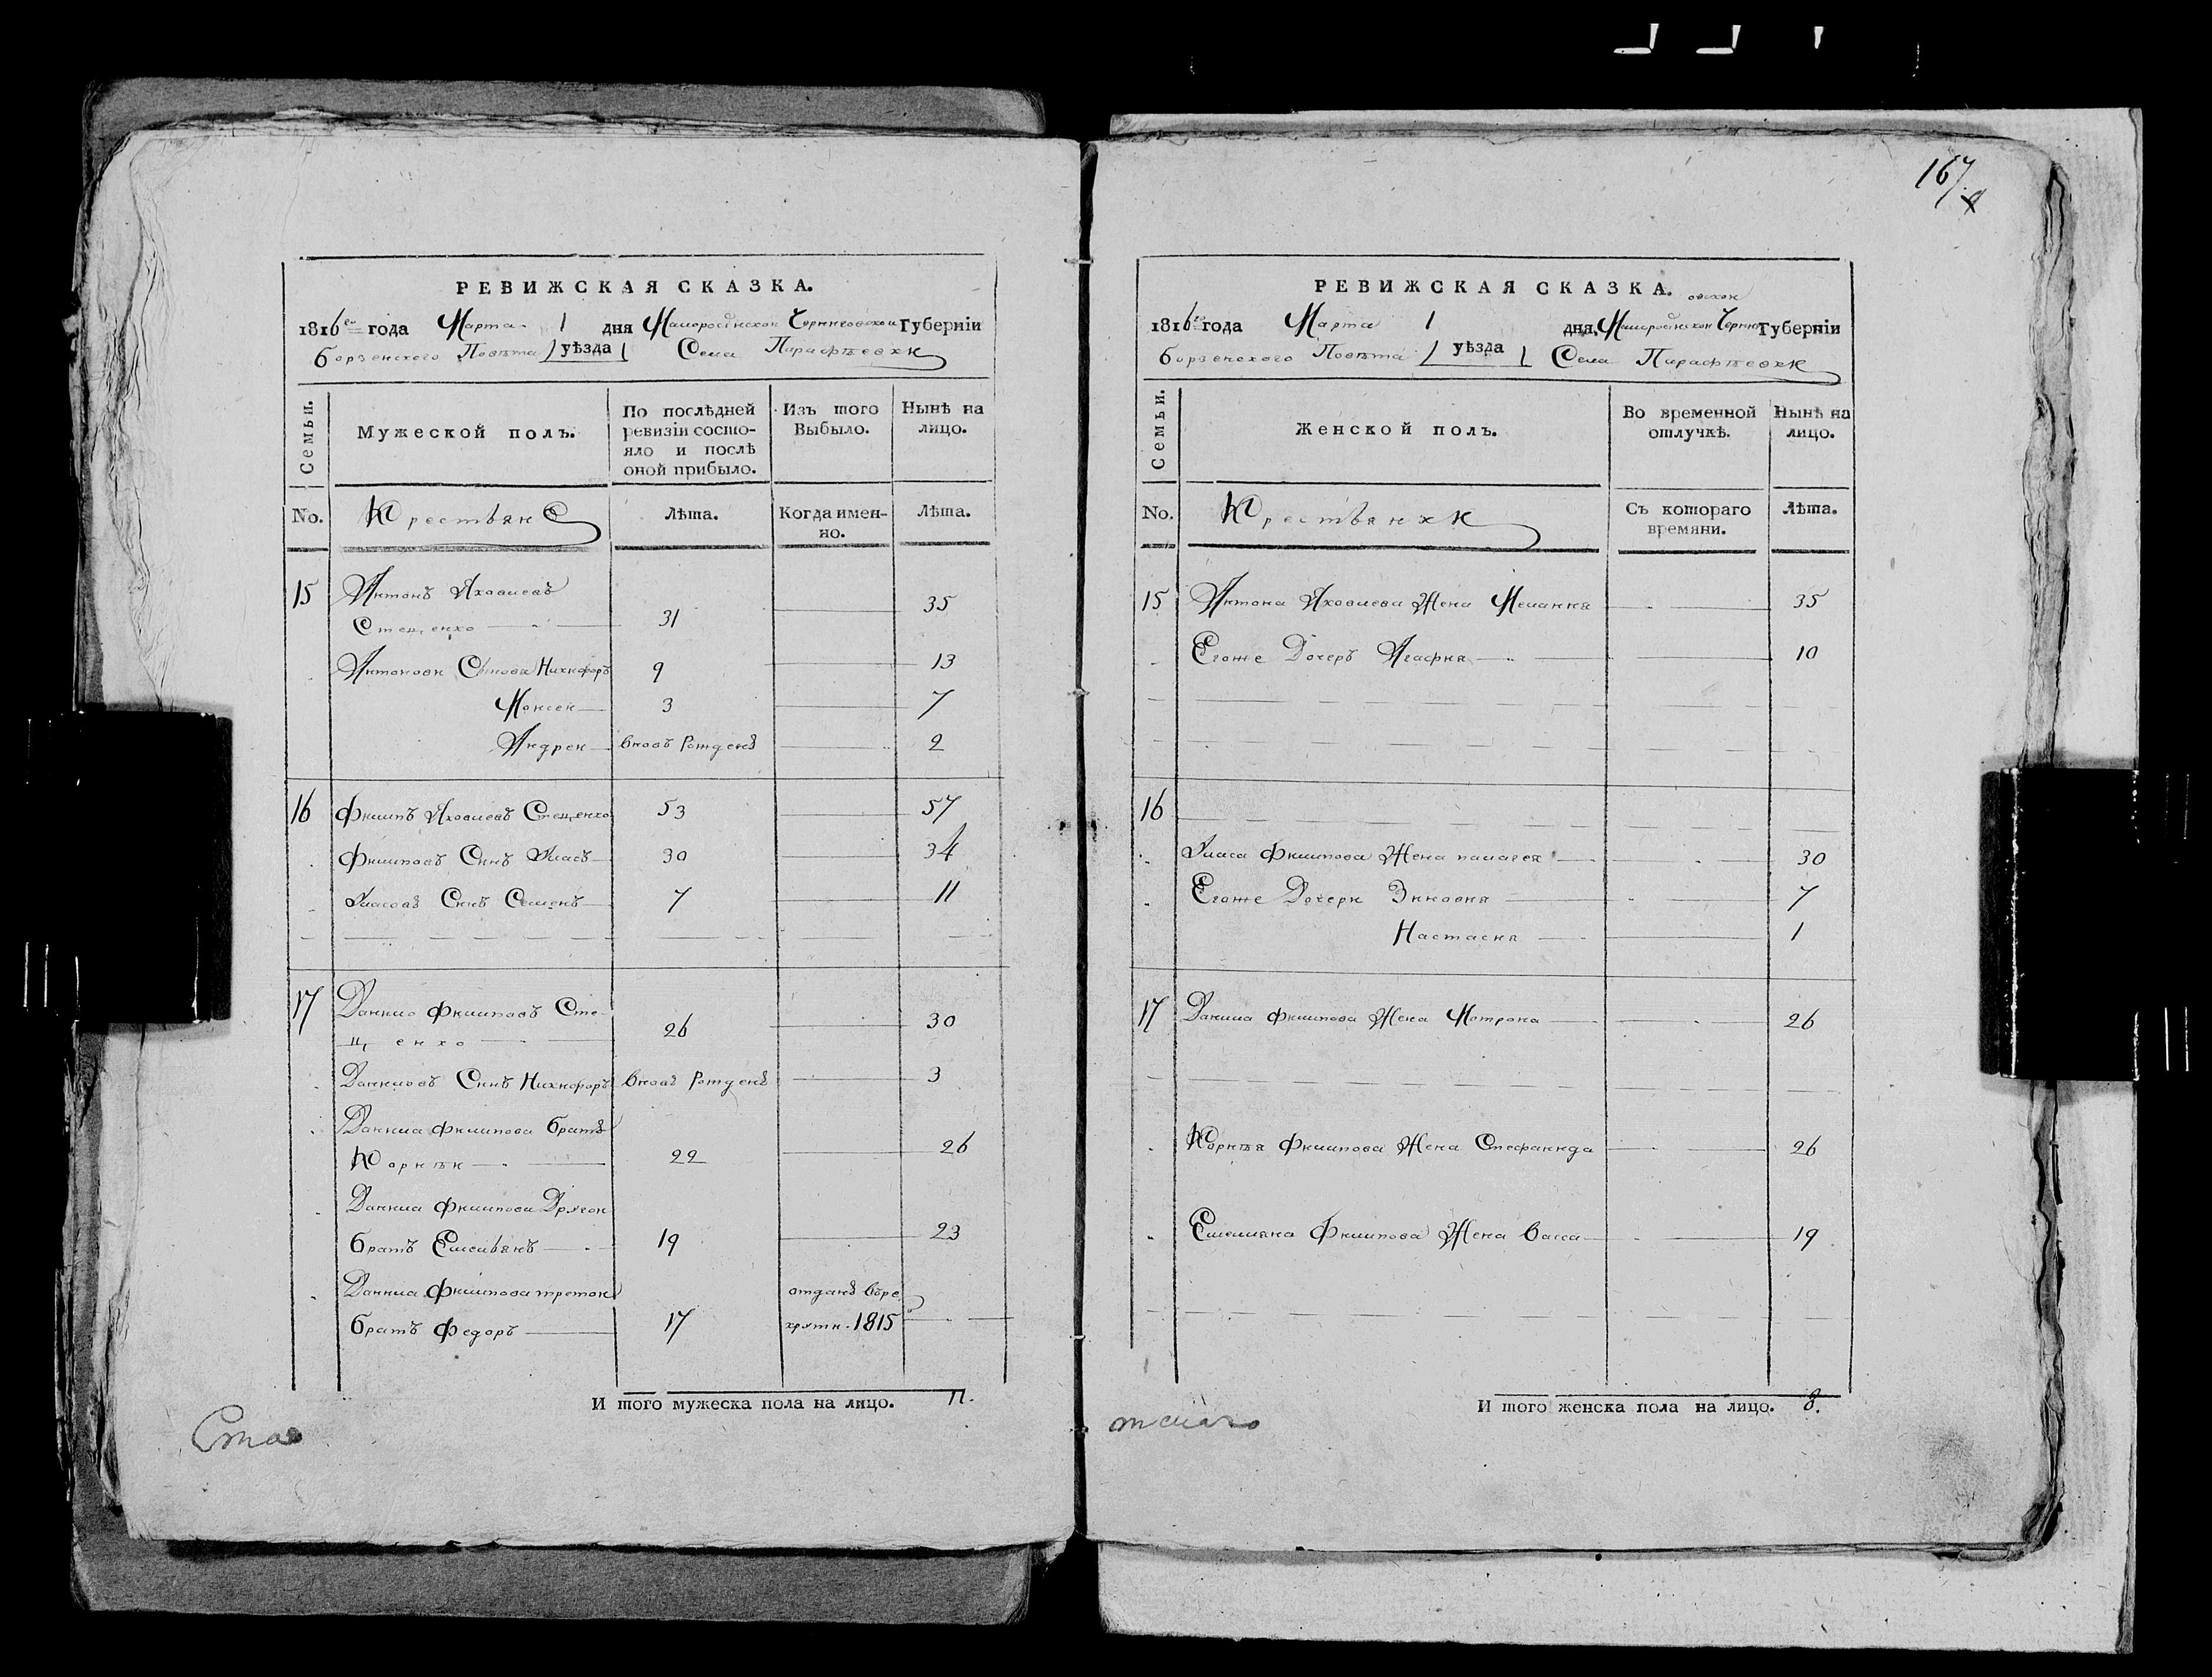 167
РЕВИЖСКАЯ СКАЗКА.
1816го года Марта 1 дня Малоросійской Черниговской Губерніи
Борзенского Повѣта уѣзда Села Парафѣевки
Семьи.
Мужеской полъ.
По послѣдней ревизіи состояло и послѣ оной прибыло.
Изъ того Выбыло.
Нынѣ на лицо.
No. Крестьяне Лѣта. Когда именно. Лѣта.
15 Антонъ Яковлевъ
Стеценко 31 35
Антоновы Сынова Никифоръ 9 13
Моисей 3 7
Андрей вновь Рожденъ 2
16 Филипъ Яковлевъ Стеценко 53 57
Филиповъ Синъ Власъ 30 34
Власовъ Синъ Семенъ 7 11
17 Данило Филиповъ Сте-
ценко 26 30
Даниловъ Синъ Никифоръ вновь Рожденъ 3
Данила Филипова братъ
Корнѣй 22 26
Данила Филипова Другой
братъ Емельянъ 19 23
Данила Филипова третой отданъ въре
братъ Федоръ 17 круты 1815
И того мужеска пола на лицо. 11.
РЕВИЖСКАЯ СКАЗКА.
овской
1816го года Марта 1 дня Малоросійской Черниг Губерніи
Борзенского Повѣта уѣзда Села Парафѣевки
Семьи.
Женской полъ.
Во временной отлучкѣ.
Нынѣ на лицо.
No. Крестьянки Съ котораго времяни. Лѣта.
15 Антона Яковлева Жена Мелания 35
Егоже Дочеръ Агафия 10
16
Власа Филипова Жена палагея 30
Егоже Дочери Зиновия 7
Настасия 1
17 Данила Филипова Жена Мотрона 26
Корнѣя Филипова Жена Стефанида 26
Емелияна Филипова Жена васса 19
И того женска пола на лицо. 8.